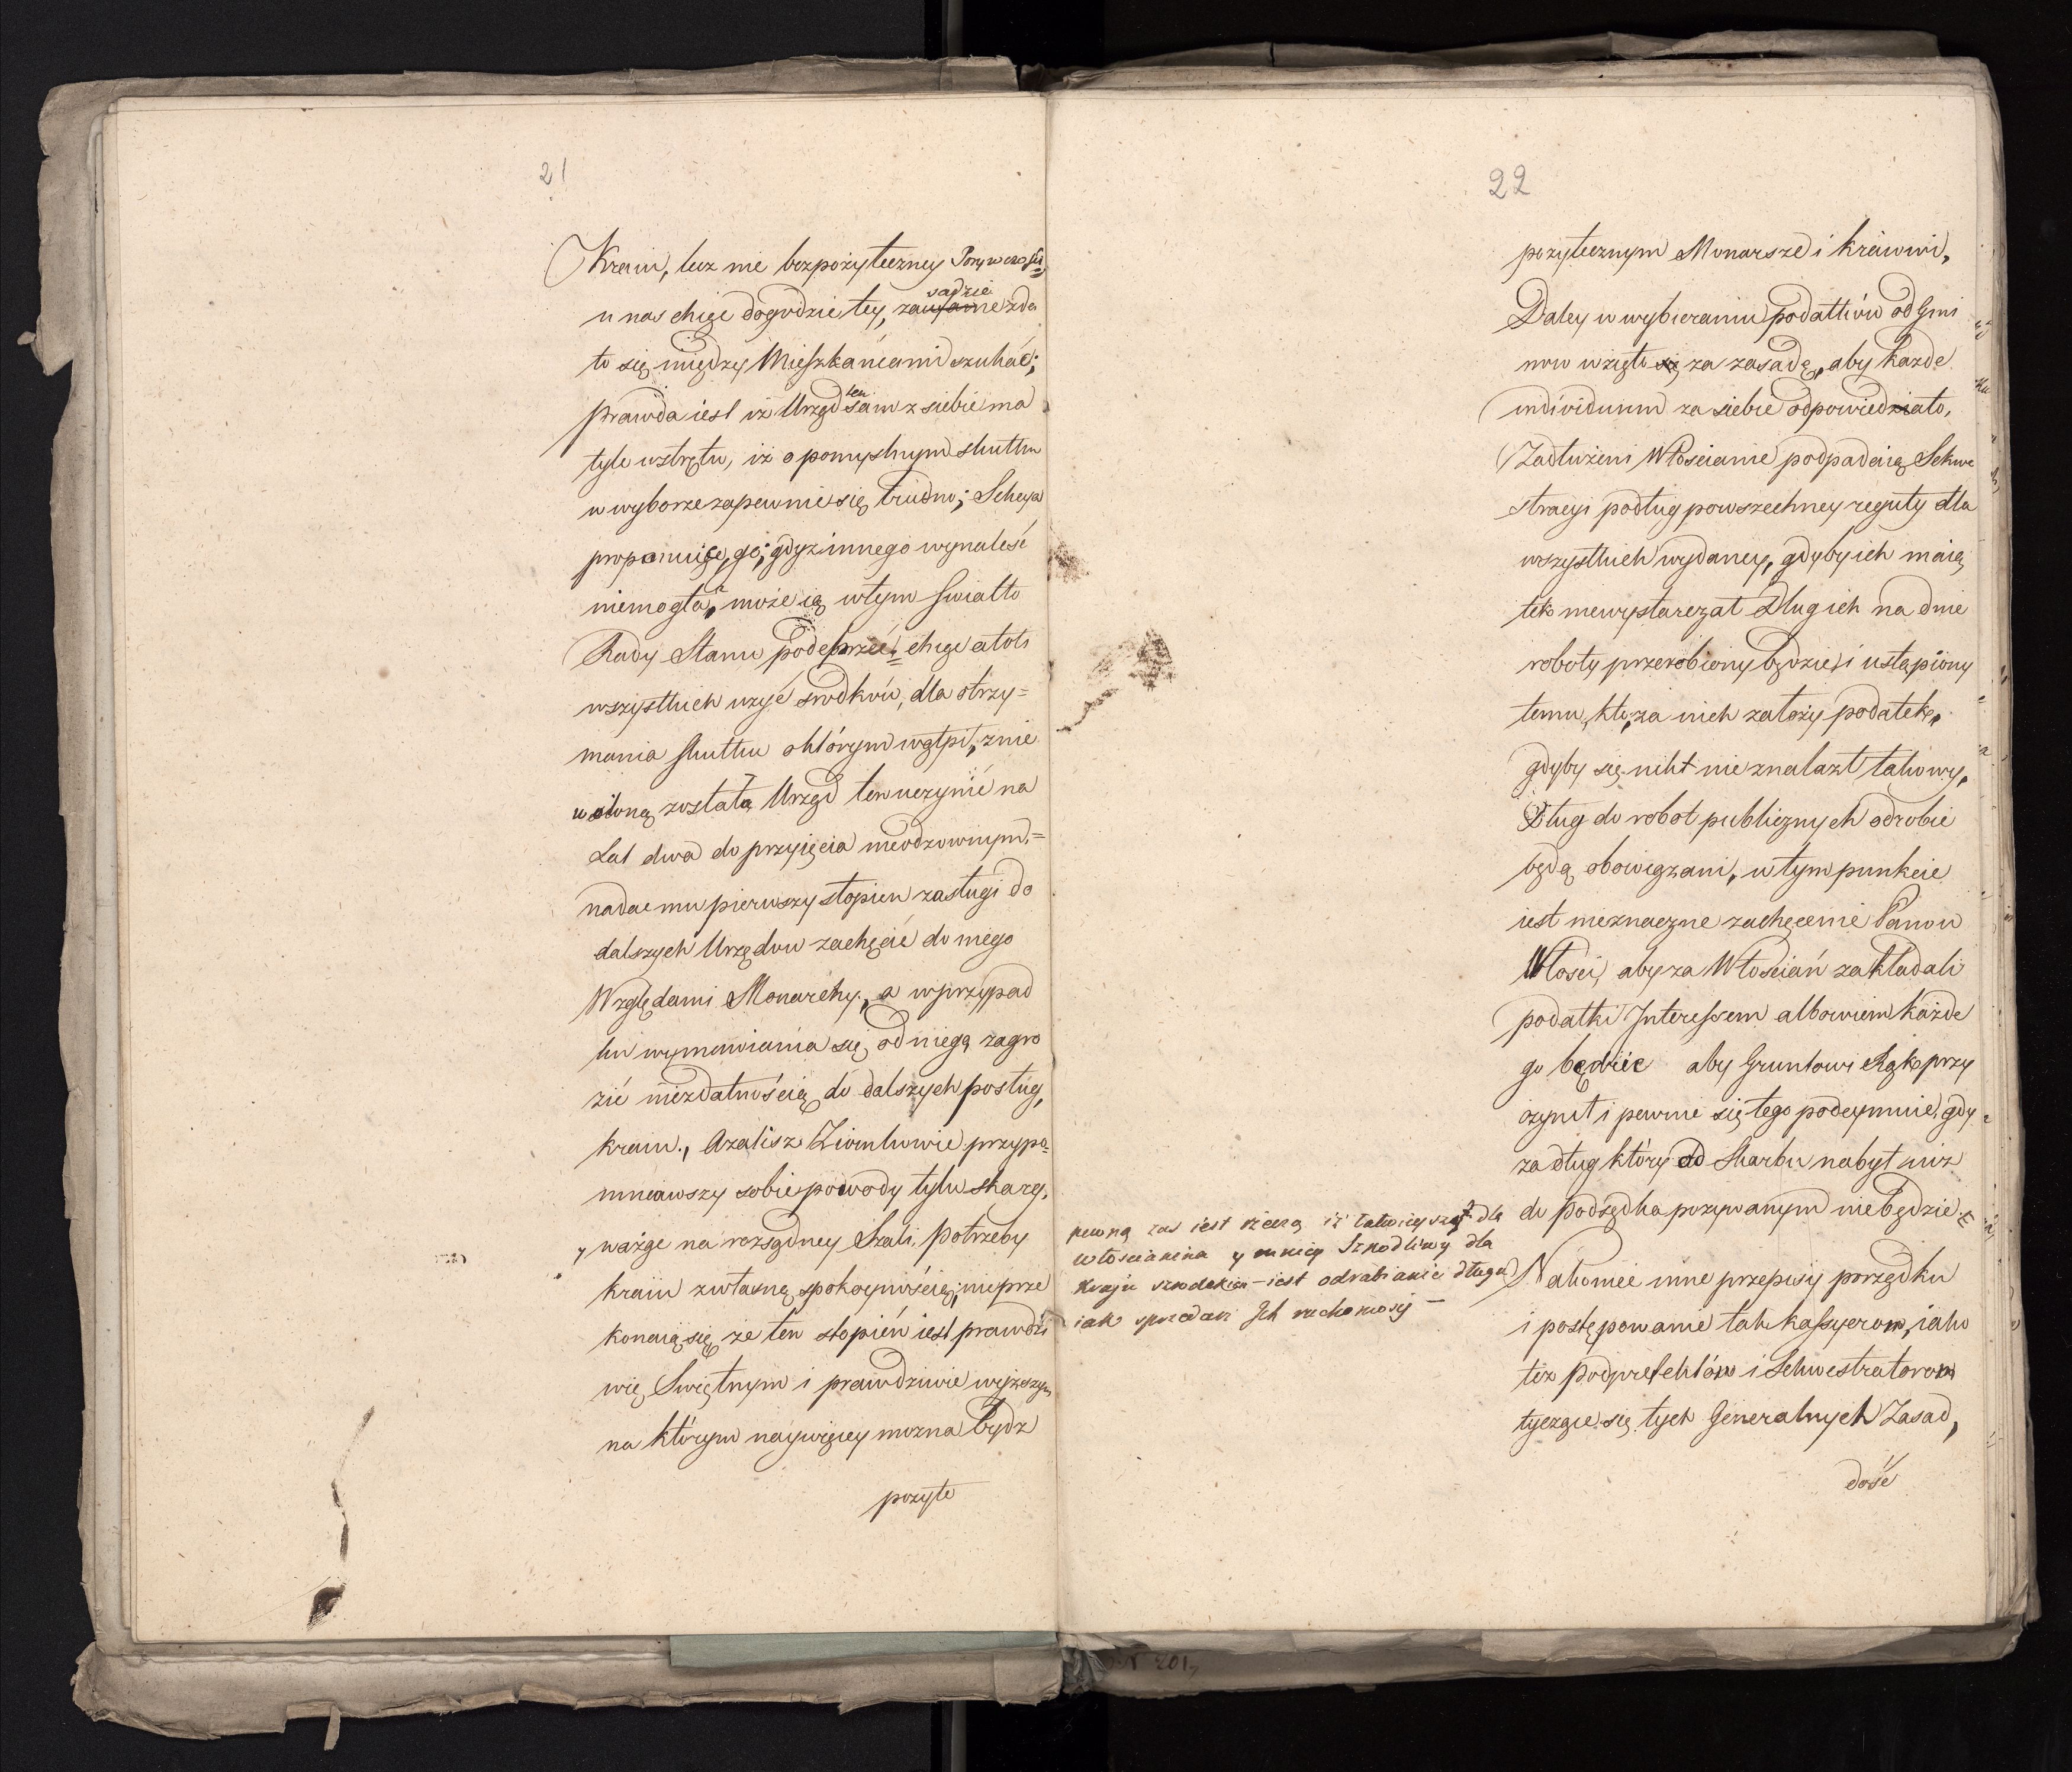 21
Kraiu, lecz nie bezpożyteczney
u nas chcąc dogodzić tey, zasadzie zda
ło się między Mieszkańcami szukać;
prawda iest iż Urząd ten sam z siebie ma
tyle wstrętu, iż o pomyślnym skutku
w wyborze zapewnić się trudno;
proponuiąc go; gdy innego wynaleść
niemogła, może ią w tym Swiatło
Rady Stanu podeprzeć; chcąc atoli
wszystkich użyć srodków, dla otrzy=
mania skutku o którym wątpi,
zostałą Urząd ten uczynić na
Lat dwa do przyięcia nieodzownym,=
nadać mu pierwszy stopień zasługi do
dalszych Urzędow zachęcić do niego
Względami Monarchy, a w przypad
ku wymawiania się od niego zagro
zić niezdatnością do dalszych posług,
kraiu., Azalisz Ziomkowie przypo=
mniawszy sobie powody tylu skarg,
y ważąc na rozsądney Szali, potrzeby
kraiu z własną spokoynością, nieprze
konaią się, że ten stopień iest prawdzi
wie, Swiętnym i prawdziwie wyższym
na którym naywięcey można bydz
pożyte
22
pożytecznym Monarsze i kraiowi,
Daley w wybieraniu podatków od Gmi
now wzięto się za zasadę, aby każde
individuum za siebie odpowiedziało,
Zadłużeni Włościanie podpadaią Sekwe
stracyi podług powszechney reguły dla
wszystkich wydaney, gdyby ich maią
tek niewystarczał Dług ich na dnie
roboty przerobiony będzie, i ustąpiony
temu, kto, za nich założy podatek,
gdyby się nikt nie znalazł takowy,
Dług do robot publicznych odrobić
będą obowiązani, w tym punkcie
iest nieznaczne zachęcenie Panow
Włości, aby za Włościań zakładali
podatki Interessem albowiem każde
go będzie aby Gruntowi Rąk przy
czynił i pewnie się tego podeymnie, gdy
za dług który od Skarbu nabył iuż
do Podsędka pozywanym nie będzie.
pewną zas iest rzeczą iż dla
włościanina y mniey Szkodliwy dla
Kraju srzodekiem – iest odrabianie długu
iak sprzedarz Ich ruchomosy –
Nakoniec inne przepisy porządku
i postępowanie tak kassyerom, iako
też Podprefektóm i Sekwestratorom
tyczące się tych Generalnych Zasad,
dość